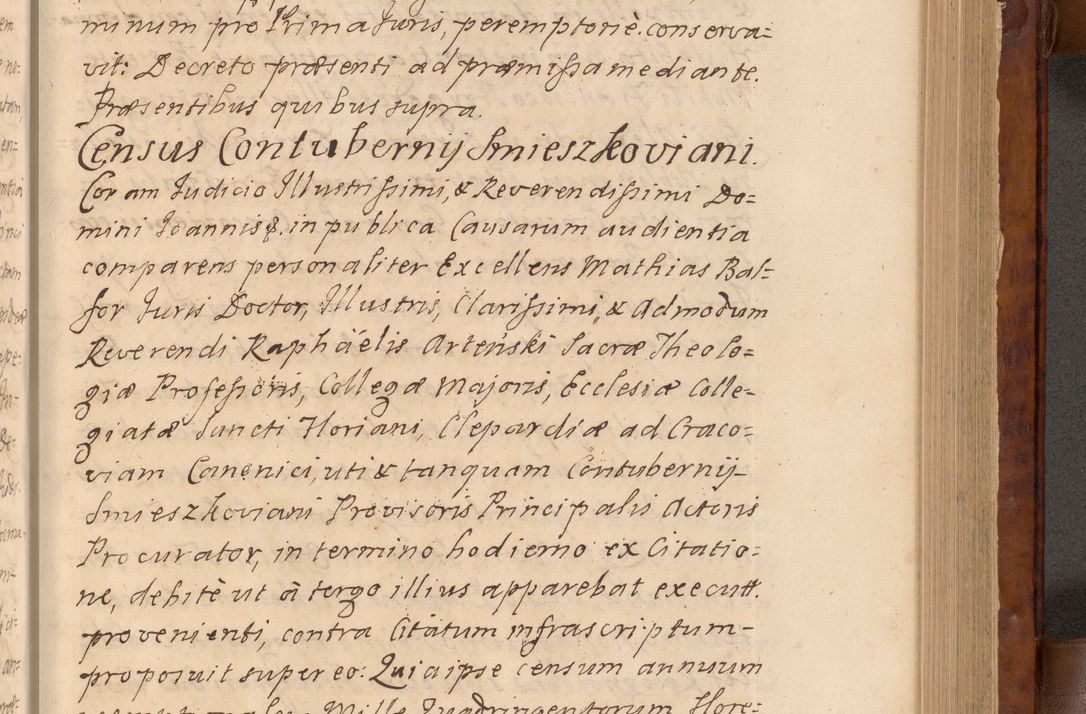 minum pro Prima Juris, peremptoriè conserva=
vit: Decreto præsenti ad præmissa mediante.
Præsentibus quibus supra.
Census Contubernij Smieszkoviani.
Coram Judicio Illustrissimi, & Reverendissimi Do=
mini Joannis &. in publica Causarum audientia
comparens personaliter Excellens Mathias Bal=
for Juris Doctor, Illustris, Clarissimi, & Admodum
Reverendi Raphäélis Arteński Sacræ Theolo=
giæ Professoris, Collegæ Majoris, Ecclesiæ Colle=
giatæ Sancti Floriani, Clepardiæ ad Craco=
viam Canonici, uti & tanquam Contubernij
Smieszkoviani Provisoris Principalis Actoris
Procurator, in termino hodierno ex Citatio=
ne, debitè ut à tergo illius apparebat executt.
provenienti, contra Citatum infrascriptum
proposuit super eo: Quia ipse censum annuum
Mille Quadringentorum Flore=